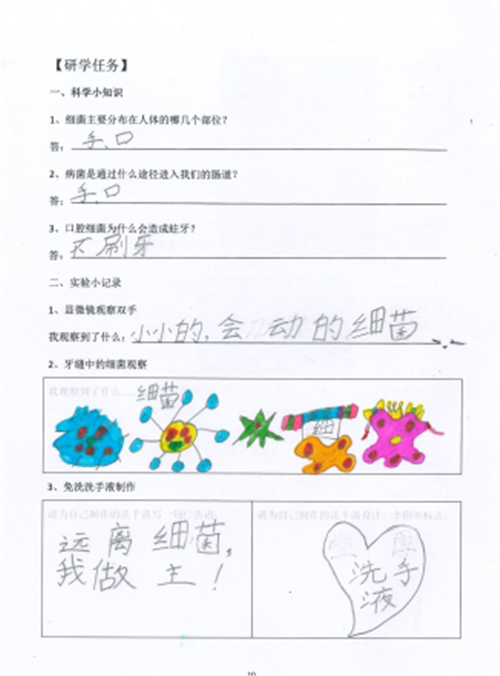 【研学任务】
一、科学小知识
1、细菌主要分布在人体的哪几个部位?
答：手、口
2、病菌是通过什么途径进入我们的肠道?
答：手、口
3、口腔细菌为什么会造成蛀牙?
答：不刷牙
二、实验小记录
1、显微镜观察双手
我观察到了什么：小小的，会动的细菌
2、牙缝中的细菌观察
我观察到了什么
细菌
细
3、免洗洗手液制作
请为自己制作的洗手液写一句广告语：
请为自己制作的洗手液设计一个图形标志：
远离细菌，
我做主！
洗手
液